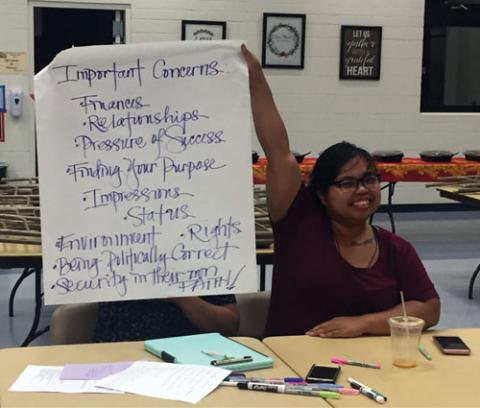 Important Concerns
• Finances
• Relationships
• Pressure of Success
• Finding Your Purpose
• Impressions
Status
• Environment • Rights
• Being Politically Correct
• Security in their own
FAITH!
LET US
gather
with a grateful
HEART